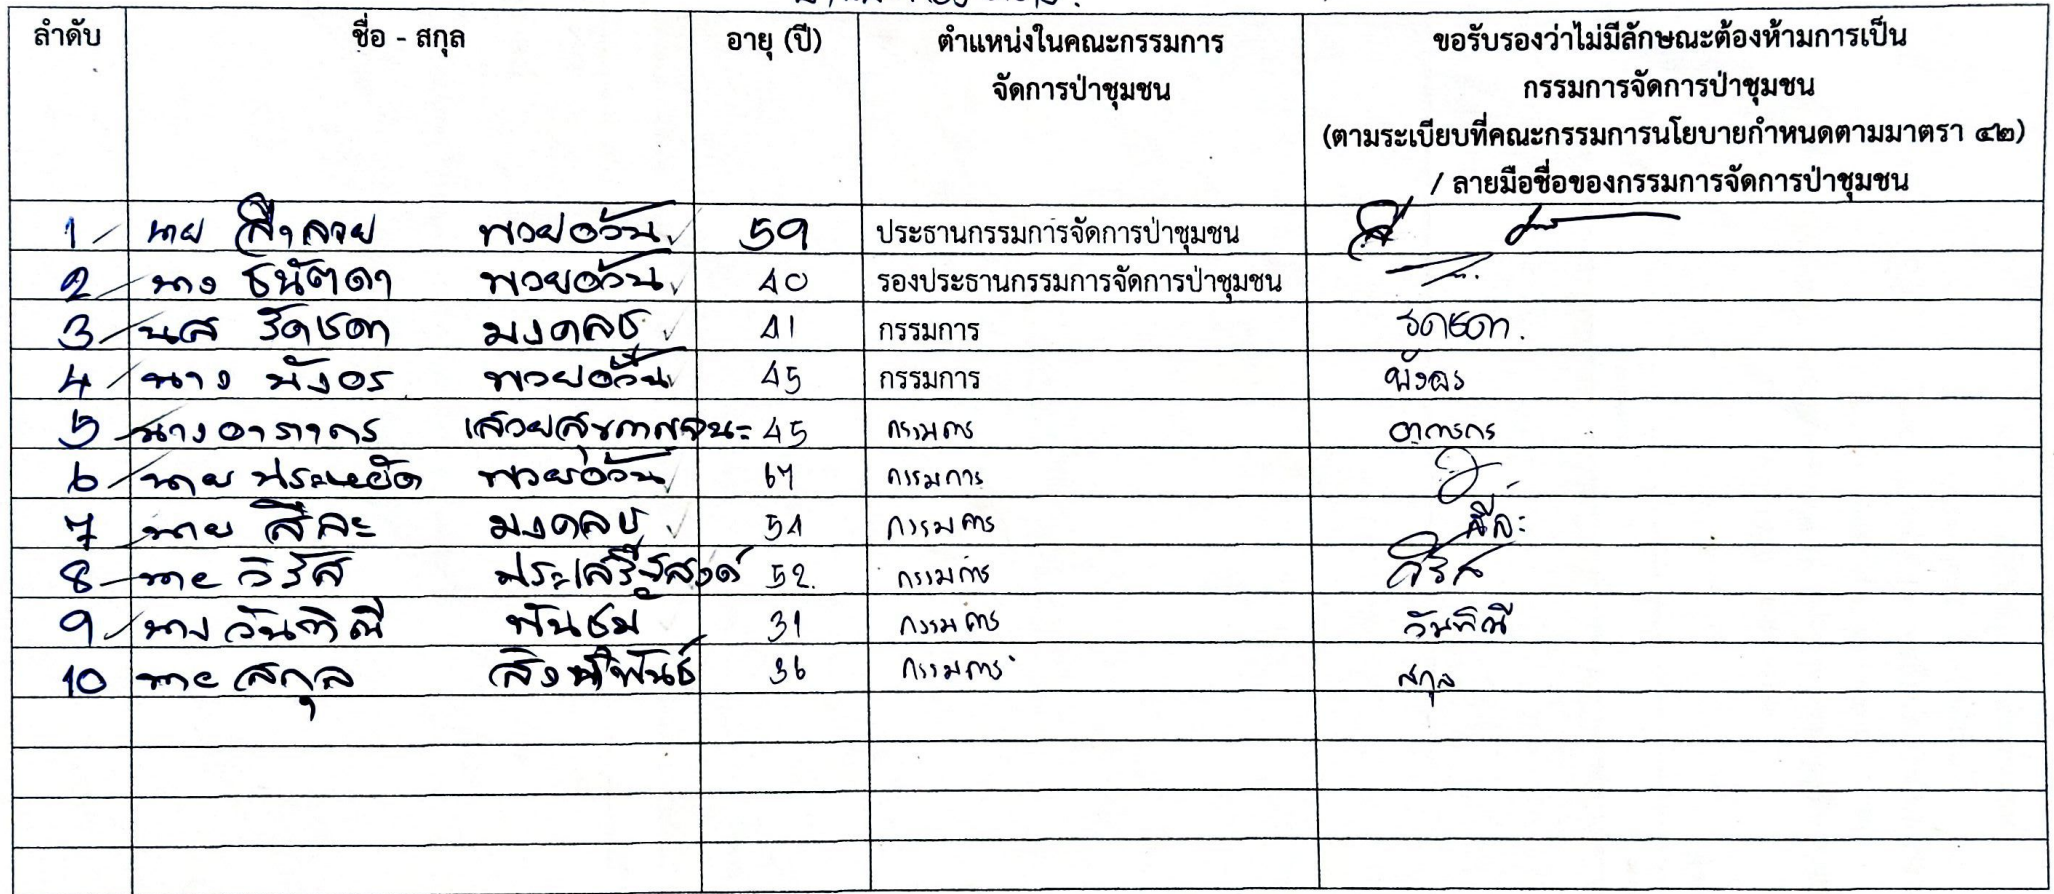 ลำดับ ชื่อ - สกุล อายุ (ปี) ตำแหน่งในคณะกรรมการ ขอรับรองว่าไม่มีลักษณะต้องห้ามการเป็น
จัดการป่าชุมชน กรรมการจัดการป่าชุมชน
(ตามระเบียบที่คณะกรรมการนโยบายกำหนดตามมาตรา ๔๒)
/ ลายมือชื่อของกรรมการจัดการป่าชุมชน
1 นาย สำลวย พวยอ้วน 59 ประธานกรรมการจัดการป่าชุมชน
2 นาง ธนัตดา พวยอ้วน 40 รองประธานกรรมการจัดการป่าชุมชน
3 นส รัดชดา มงคลช 41 กรรมการ รดชดา.
4 นาง พังอร พวยอ้วน 45 กรรมการ พังอร
5 นาง อาภากร 45 กรรมการ อาภากร
6 นาย ประหยัด พวยอ้วน 67 กรรมการ
7 นาย สีละ มงคลช 54 กรรมการ สีละ
8 นาย วิรัส 52. กรรมการ
9 นาง วันทินี พันธม 31 กรรมการ วันทินี
10 นาย สกุล 36 กรรมการ สกุล